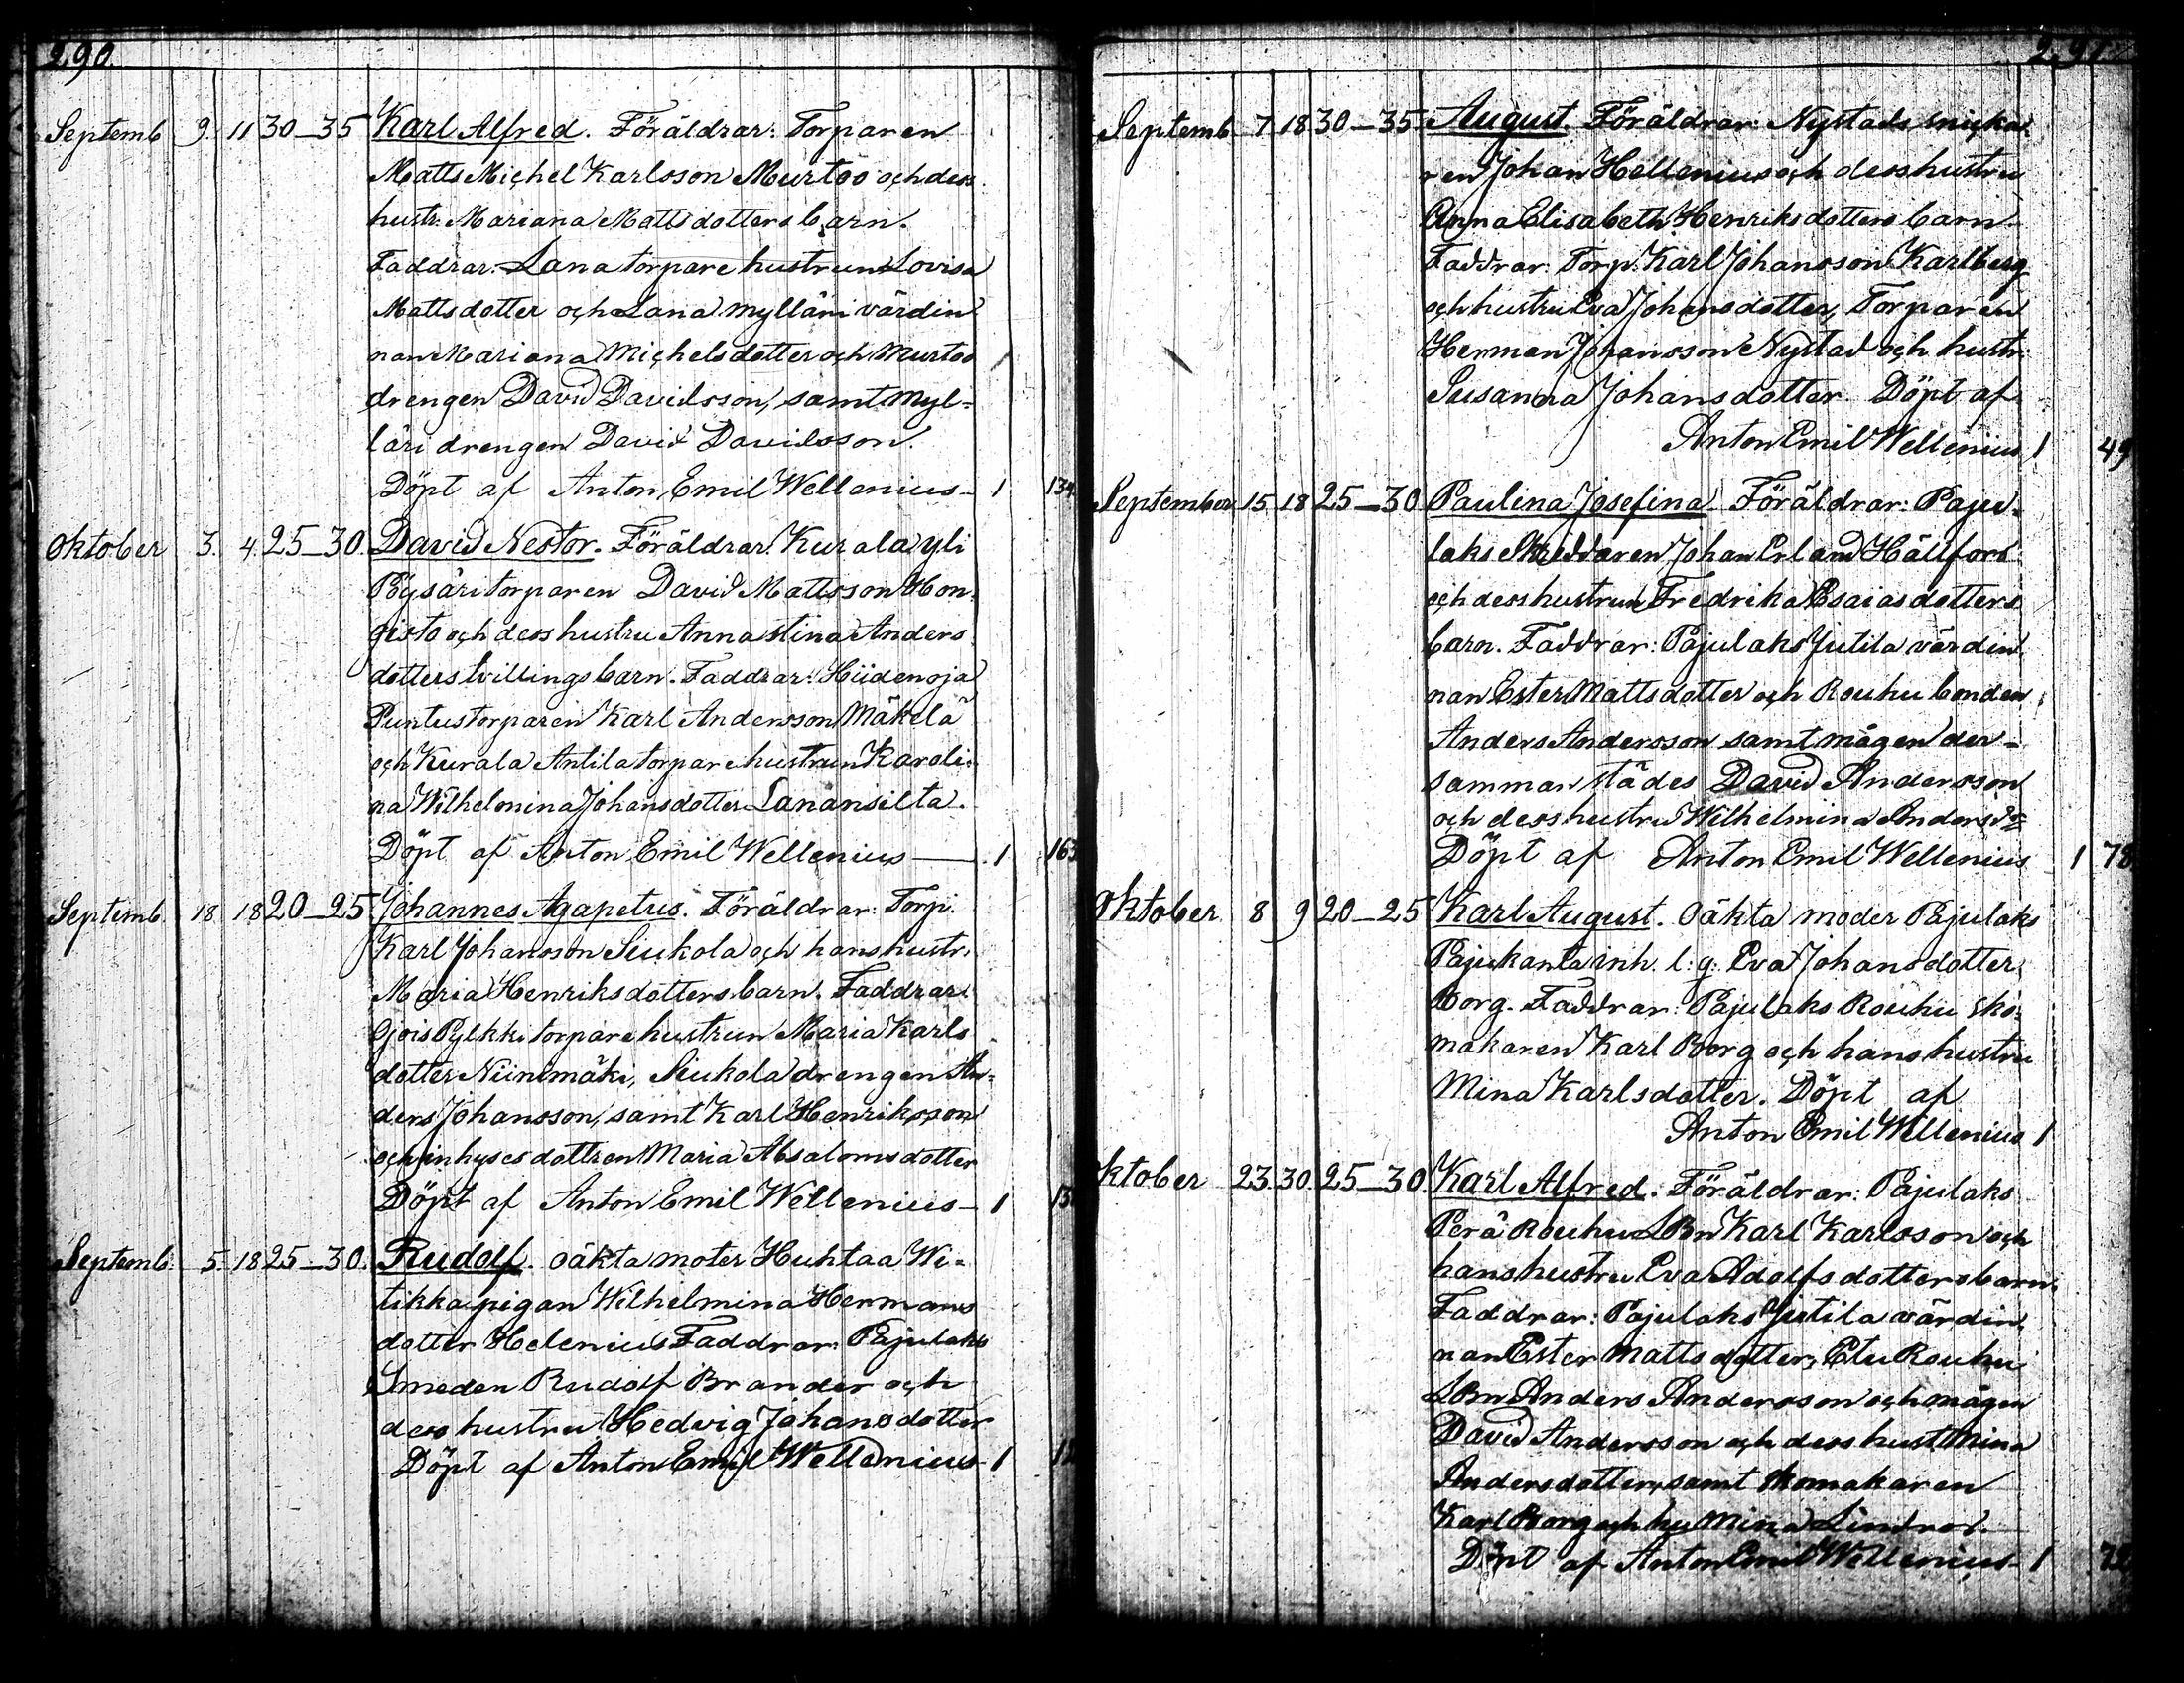 290.
Septemb 9. 11 30—35 Karl Alfred. Föräldrar: Torparen
Matts Michel Karlsson Murtoo och dess
hustr. Mariana Mattsdotters barn.
Faddrar: Lana torpare hustrun Lovisa
Mattsdotter och Lana Mylläri värdin
nan Mariana Michelsdotter och Murtoo
drengen David Davidsson, samt Myl-
läri drengen David Davidsson.
Döpt af Anton Emil Wellenius— 1 134
Oktober 3. 4. 25—30. David Nestor. Föräldrar: Kurala yli
Pöysäri torparen David Mattsson Hon
gisto och dess hustru Anna Stina Anders
dotters tvillings barn. Faddrar: Hiidenoja
Puntus torparen Karl Andersson Mäkelä
och Kurala Antila torpare hustrun Karoli-
na Wilhelmina Johansdotter Lanansilta.
Döpt af Anton Emil Wellenius — 1 163
Septemb. 18 18 20—25 Johannes Agapetus. Föräldrar: Torp.
Karl Johansson Siukola och hans hustr.
Maria Henriksdotters barn. Faddrar:
Gois Pylkki torpare hustrun Maria Karls
dotter Niinimäki, Siukola drengen An-
ders Johansson, samt Karl Henriksson
och inhyses dottren Maria Absalomsdotter
Döpt af Anton Emil Wellenius— 1 13
Septemb. 5. 18 25—30. Rudolf. Oäkta moter Huhtaa Wi-
tikka pigan Wilhelmina Hermans
dotter Helenius Faddrar: Pajulaks
Smeden Rudolf Brander och
dess hustru Hedvig Johansdotter
Döpt af Anton Emil Wellenius— 1 1
291.
Septemb. 7 18 30—35. August. Föräldrar: Nystads snicka-
ren Johan Hellenius och dess hustru
Anna Elisabeth Henriksdotters barn.
Faddrar: Torp. Karl Johansson Karlberg
och hustru Eva Johansdotter, Torparen
Herman Johansson Nystad och hustr.
Susanna Johansdotter. Döpt af
Anton Emil Wellenius 1 49
September 15 18 25—30 Paulina Josefina. Föräldrar: Paju-
laks Skreddaren Johan Erland Hällfors
och dess hustrun Fredrika Esaiasdotters
barn. Faddrar: Pajulaks Jutila värdin
nan Ester Mattsdotter och Rouhu bonden
Anders Andersson samt mågen der-
samman städes David Andersson
och dess hustru Wilhelmina Anders dr
Döpt af Anton Emil Wellenius 1 78
Oktober 8 9 20—25 Karl August. Oäkta moder Pajulaks
Pajukanta inh. l: g: Eva Johansdotter
Borg. Faddrar: Pajulaks Rouhu sko-
makaren Karl Borg och hans hustru
Mina Karlsdotter. Döpt af
Anton Emil Wellenius 1
ktober 23. 30. 25—30. Karl Alfred. Föräldrar: Pajulaks
Perä Rouhu LBn Karl Karlsson och
hans hustru Eva Adolfsdotters barn.
Faddrar: Pajulaks Jutila värdin-
nan Ester Mattsdotter, Etu Rouhu
LBn Anders Andersson och mågen
David Andersson och dess hust Mina
Andersdotter, samt skomakaren
Karl Borg och hu Mina Lindros.
Döpt af Anton Emil Wellenius— 1 72